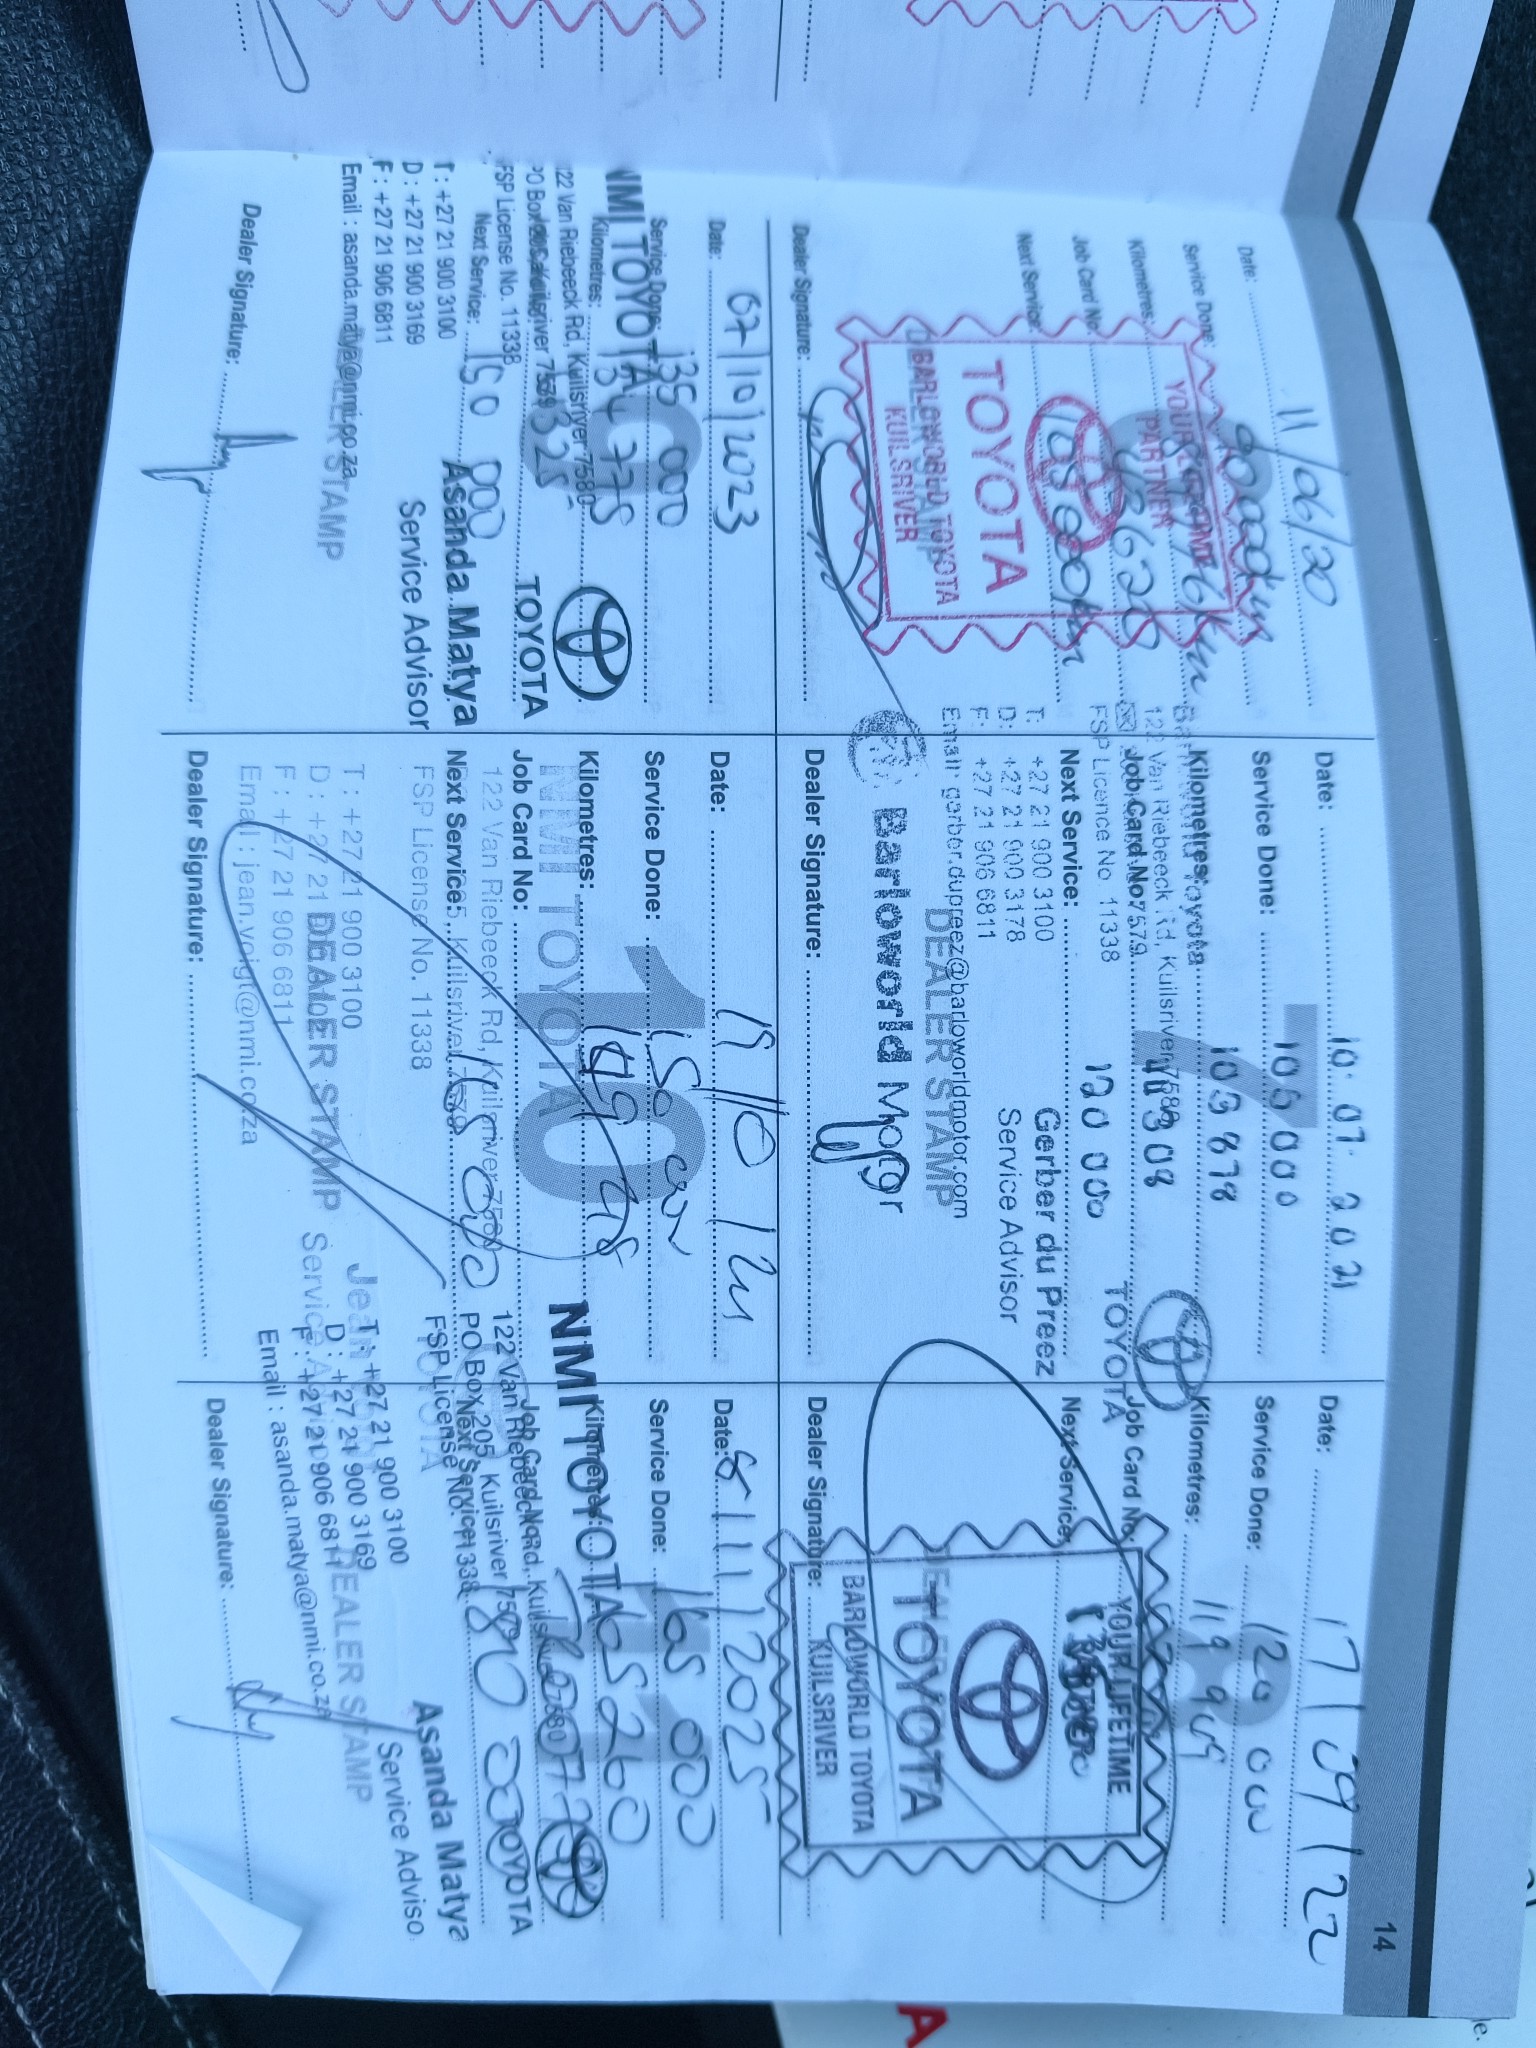 14
Date: 11/06/20
Service Done: 90000km
Kilometres:
Job Card No:
Next Service: 105000km
Dealer Signature:
YOUR LIFETIME
PARTNER
TOYOTA
DEALER STAMP
BARLOWORLD TOYOTA
KUILSRIVER
Date: 10.07.2021
Service Done: 105 000
Kilometres: 103 878
Barloworld Toyota
122 Van Riebeeck Rd, Kuilsriver, 7580
Job Card No:
7579
FSP Licence No. 11338
TOYOTA
Next Service: 120 000
T: +27 21 900 3100
Gerber du Preez
D: +27 21 900 3178
Service Advisor
F: +27 21 906 6811
Email: gerber.dupreez@barloworldmotor.com
DEALER STAMP
Barloworld Motor
Dealer Signature:
Date: 17/09/22
Service Done: 120 000
Kilometres: 119 949
Job Card No:
Next Service:
YOUR LIFETIME
TOYOTA
BARLOWORLD TOYOTA
KUILSRIVER
Dealer Signature:
Date: 07/10/2023
Service Done: 135 000
NMI TOYOTA
Kilometres:
122 Van Riebeeck Rd, Kuilsriver 7580
PO Box 205, Kuilsriver 7579
FSP License No. 11338
TOYOTA
Next Service: 150 000
Asanda Matya
Service Advisor
T : +27 21 900 3100
D : +27 21 900 3169
F : +27 21 906 6811
Email : asanda.matya@nmi.co.za
DEALER STAMP
Dealer Signature:
Date: 15/10/24
Service Done: 150 000
10
Kilometres:
NMI TOYOTA
Job Card No:
122 Van Riebeeck Rd, Kuilsriver 7580
Next Service: 165 000
205, Kuilsriver 7579
FSP License No. 11338
T : +27 21 900 3100
D : +27 21
DEALER STAMP
Service
F : +27 21 906 6811
Email : jean.voigt@nmi.co.za
Dealer Signature:
Date: 8/11/2025
Service Done: 165 000
Kilometres: 165260
NMI TOYOTA
Job Card No:
122 Van Riebeeck Rd, Kuilsriver 7580
PO Box 205, Kuilsriver 7579
Next Service: 180 000
TOYOTA
FSP License No. 11338
Asanda Matya
Service Adviso
T : +27 21 900 3100
D : +27 21 900 3169
F : +27 21 906 6811
DEALER STAMP
Email : asanda.matya@nmi.co.za
Dealer Signature: